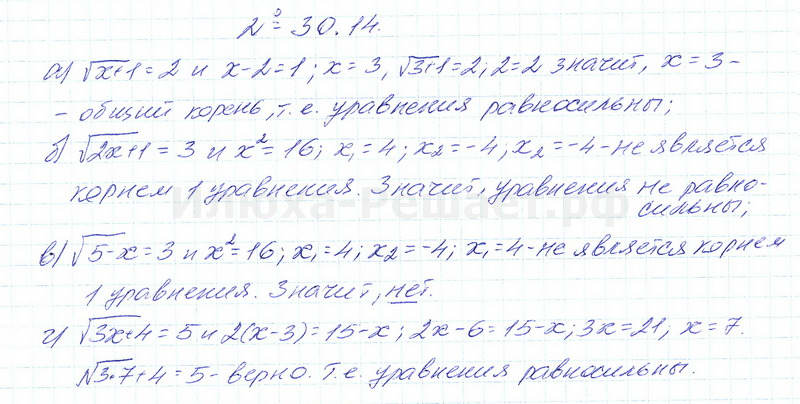 2° = 30.14.
а) √x+1 = 2 и x-2=1; x = 3, √3+1 = 2; 2=2 значит, x = 3 -
- общий корень, т.е. уравнения равносильны;
б) √2x+1 = 3 и x² = 16; x₁ = 4; x₂ = -4, x₂ = -4 - не является
корнем 1 уравнения. Значит, уравнения не равно-
сильны;
Илюха-Решает.рф
в) √5-x = 3 и x² = 16; x₁ = 4; x₂ = -4; x₁ = 4 - не является корнем
1 уравнения. Значит, нет.
г) √3x+4 = 5 и 2(x-3) = 15-x; 2x-6 = 15-x; 3x = 21, x = 7.
√3·7+4 = 5 - верно. Т.е. уравнения равносильны.